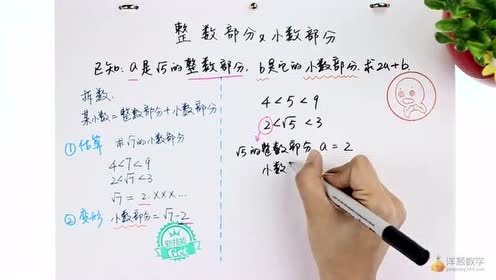 整数部分&小数部分
已知:a是√5的整数部分,b是它的小数部分.求2a+b.
拆数.
某小数=整数部分+小数部分
① 估算 求√7的小数部分
4<7<9
2<√7<3
√7=2.×××...
② 变形 小数部分=√7-2
Get
4<5<9
2<√5<3
√5的整数部分 a=2
小数
洋葱数学
yangcong345.com